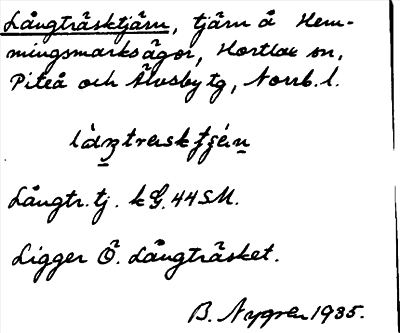 Långträsktjärn, tjärn å Hem-
mingsmarksägor, Hortlax sn,
Piteå och Älvsby tg, Norrb. l.
Långtr. tj. k G. 44 SM.
Ligger Ö. Långträsket.
B. Nygren 1935.